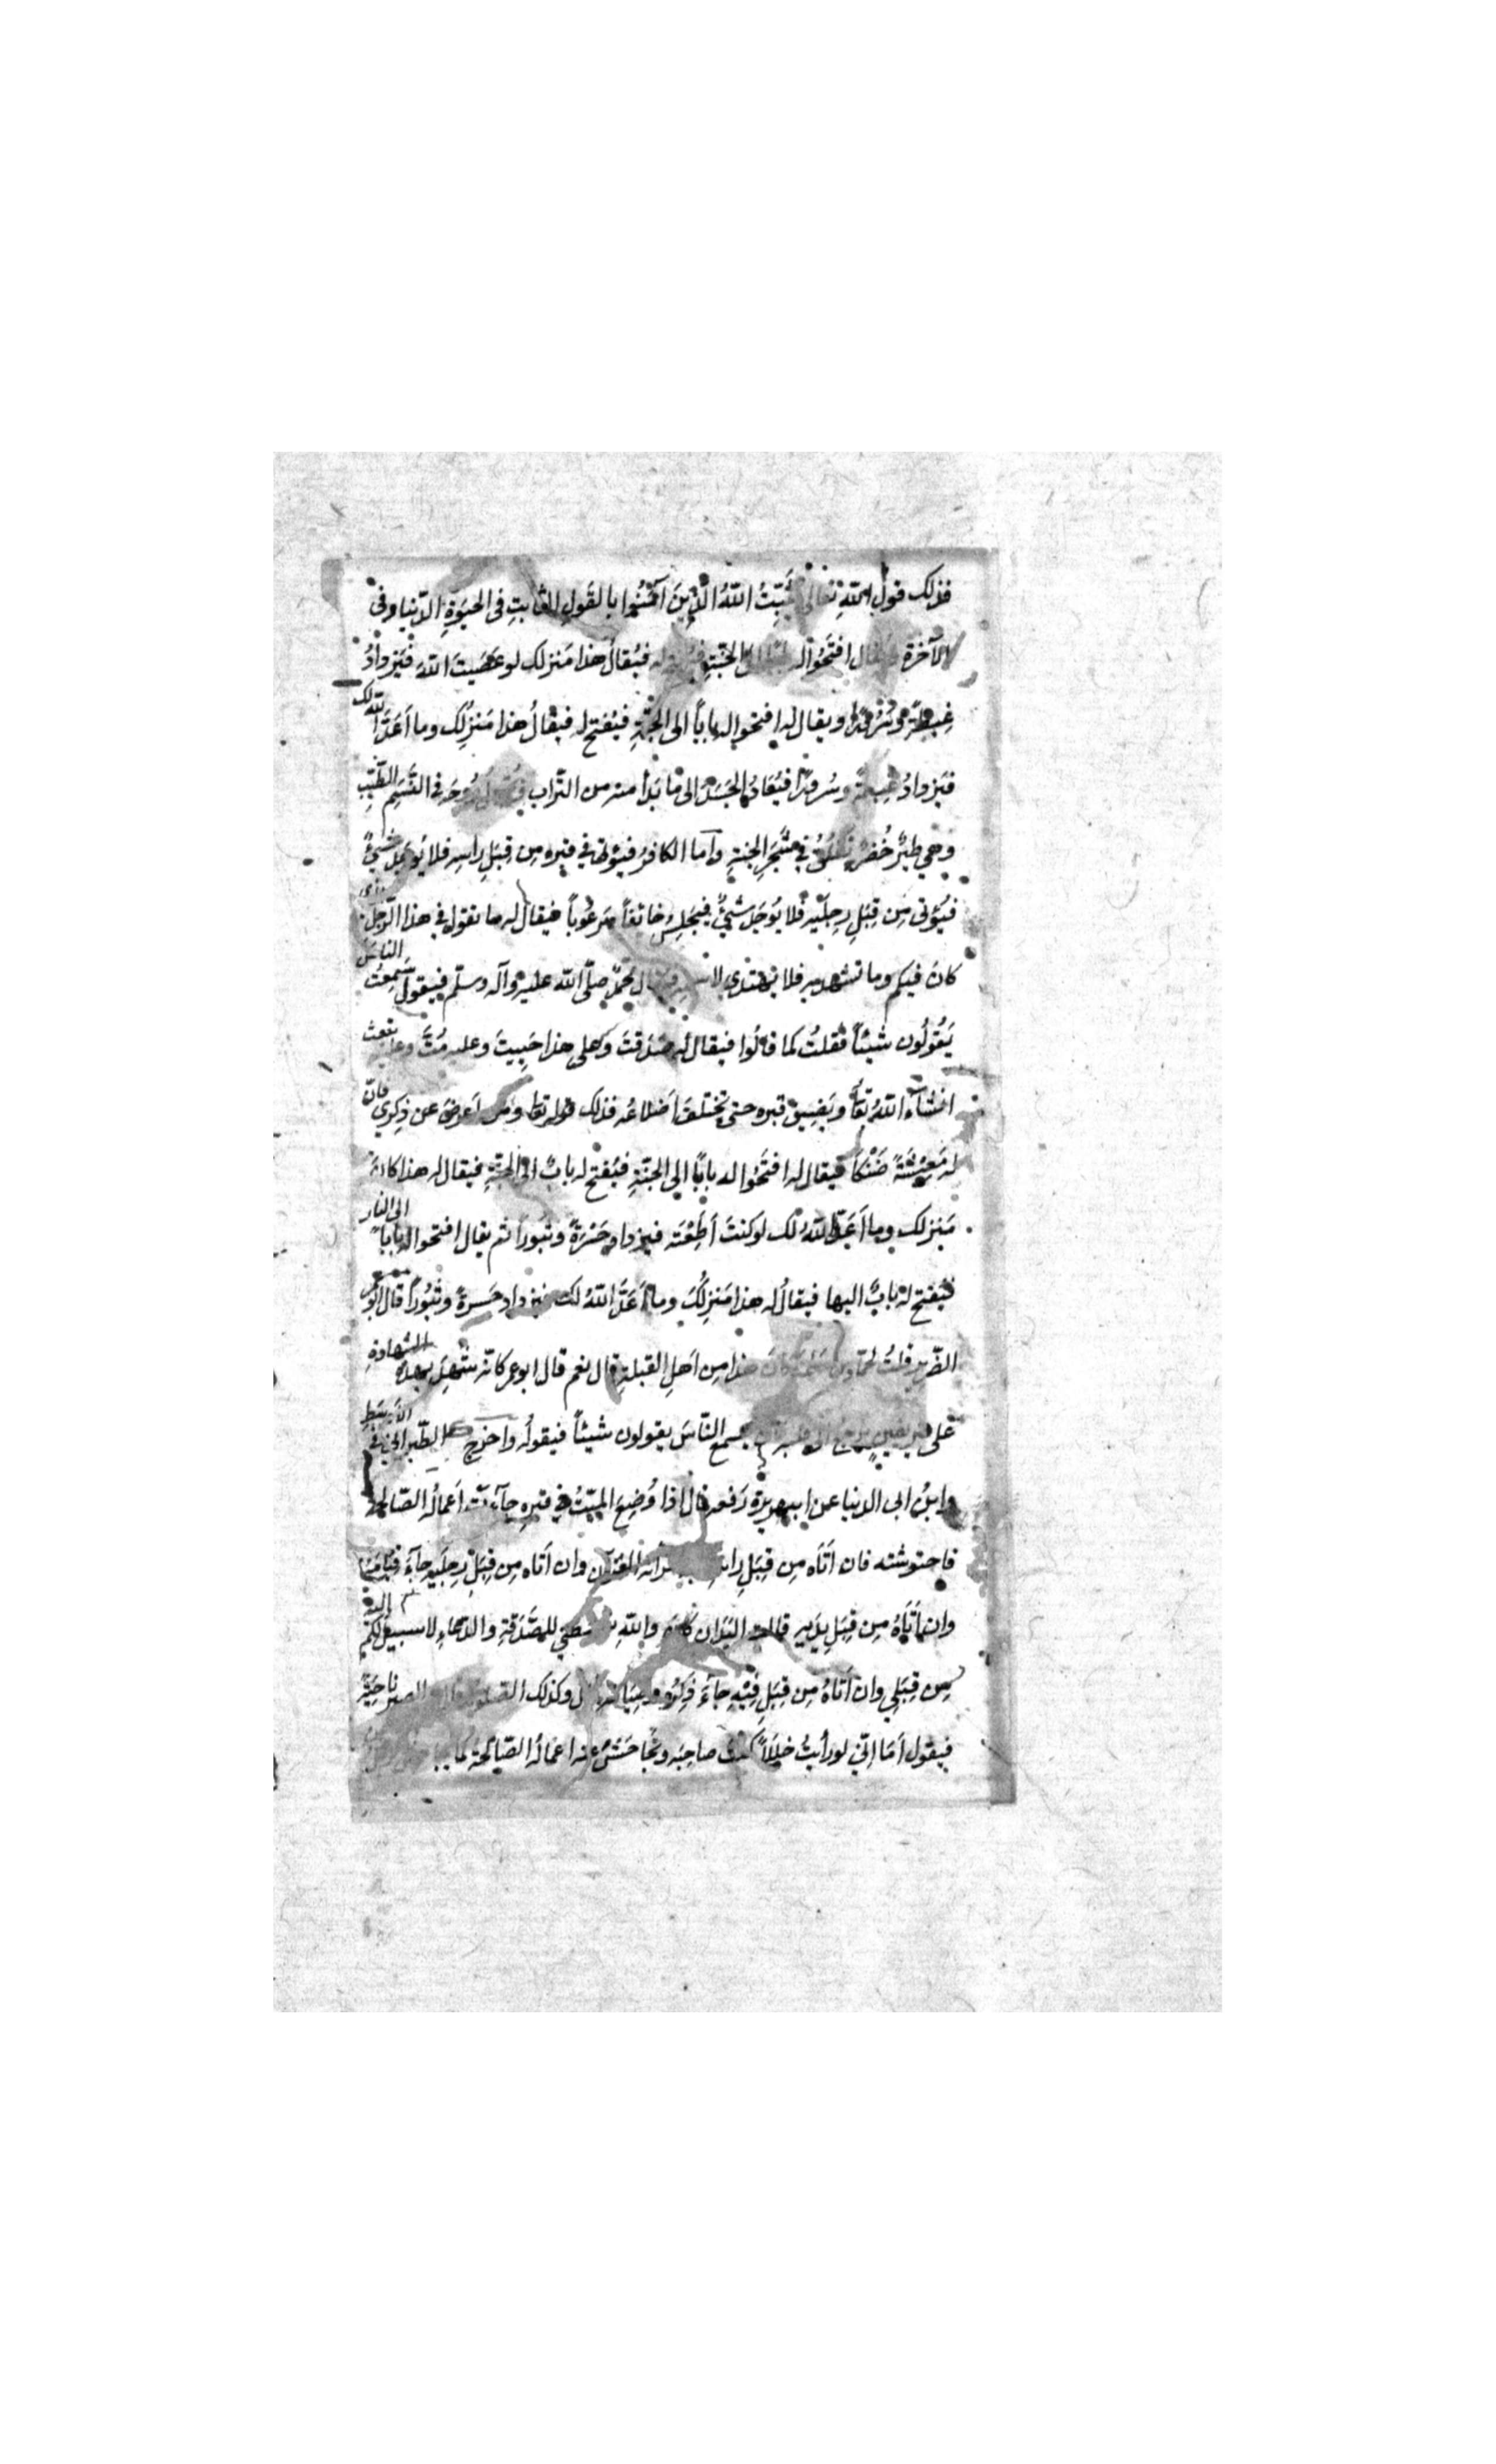 فذلك قول الله تعالى يُثَبِّتُ اللّهُ الَّذِينَ آمَنُوا بالقَولِ الثابتِ فى الحيٰوةِ الدّنيا وفى
الآخرة ويقال افتَحُوا له بابًا الى الجنّةِ له فيُقالُ هذا مَنزلك لو عَصَيتَ اللّهَ فيَزدادُ
غِبطةً وسُرُورًا ويقال له افتحوا له بابًا الى الجنّةِ فيُفتح له فيقالُ هذا مَنزِلُك وما اَعَدَّ اللّه لك
فيَزدادُ غِبطةً وسُرورًا فيُعادُ الجَسَدُ الى ما بَدأ منه من التّراب رُوحَه فى النَّسَمِ الطَّيِّبِ
وهي طيرٌ خُضرٌ تَعلُقُ في شَجَرِ الجنةِ وأما الكافرُ فيُؤتى في قبره مِن قِبَلِ راسِه فلا يُوجَدُ شيءٌ
فيُؤتى مِن قِبَلِ رِجلَيه فلا يُوجَد شيءٌ فيَجلِسُ خائفاً مَرعُوباً فيقال له ما تقول في هذا الرّجل الذى
كانَ فيكم وما تشهد به فلا يَهتدى لاسمه فيقال محمّدٌ صلّى اللّه عليه وآله وسلّم فيقول سَمِعتُ الناسَ
يَقُولُون شيئاً فقلتُ كما قالُوا فيقال له صَدَقتَ وعلى هذا حَيِيتَ وعليه مُتَّ وعليه تبعث
انشاء اللّهُ تعالى ويَضِيق قبره حتى تختلفَ اَضلاعُه فذلك قوله تعالى ومن اَعرضَ عن ذِكرِي فانّ
له مَعِيشَةً ضَنْكًا فيقال له افتَحُوا له بابًا إلى الجنّةِ فيُفتح له بابٌ الى الجنّةِ فيقال له هذا كانَ
مَنزلك وما اَعَدَّ اللّهُ لك لو كنتَ اَطَعْتَه فيزداد حَسْرَةً وثبورًا ثم يقال افتحوا له بابًا الى النار
فيُفتح له بابٌ اليها فيقالُ له هذا مَنزِلُكَ وما اَعَدَّ اللّهُ لك فيزداد حَسرةً وثُبُورًا قال ابو عمر
الضّرير قلتُ لحمّاد بن سَلَمة كانَ هذا مِن اَهلِ القبلةِ قال نعم قال ابو عمر كانّه شهِدَ بهذه الشهادةِ
على غير يقينٍ يرجع الى قلبه كان يسمع النّاسَ يقولون شيئًا فيقولُه واخرج الطّبرانىّ في الاَوسَطِ
وابنُ ابى الدنيا عن ابى هريرة رَفعه قال اذا وُضِعَ الميّتُ في قبرِه جآءَت اَعمالُه الصّالحة
فاحتوشته فان اَتَاه مِن قِبَلِ راسه جاء قراءته القرآن وان اَتاه مِن قِبَلِ رِجلَيه جآءَ قيامُه
وان اَتَاهُ مِن قِبَلِ يدَيه قالت اليَدَان كان واللّهِ يبسطني للصَّدَقةِ والدّعاءِ لا سبيلَ لكم اليه
مِن قِبَلِي وان اَتَاهُ مِن قِبَلِ فِيْهِ جاءَ ذِكرُه وصِيَامُه قال وكذلك الصلوة والصبر ناحِيَةً
فيقول اَمَا اِنّي لو رأيتُ خَلَلاً كنتُ صاحِبَه وتُجاحَشُ عنه اعمالُه الصّالحة كما